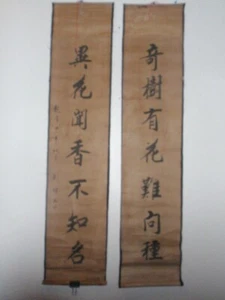 奇樹有花難問種
異花聞香不知名